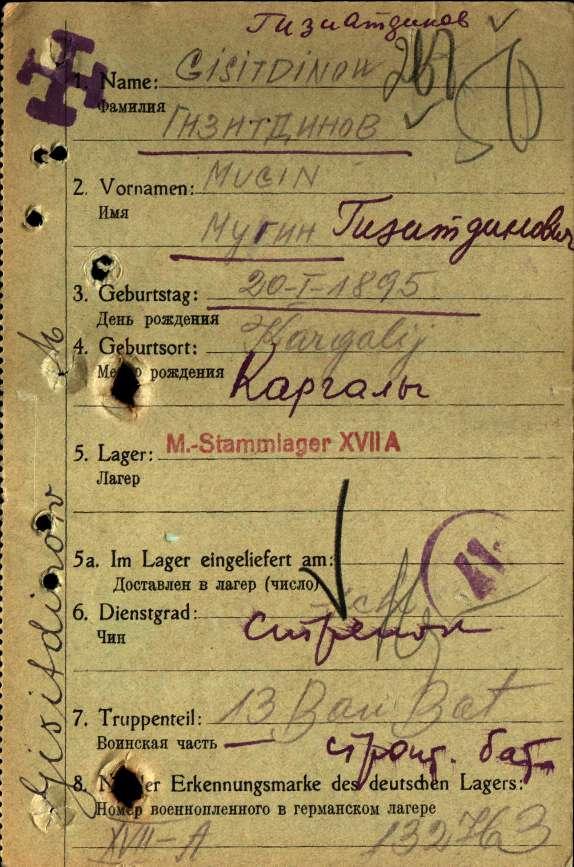 Гизиатдинов
1. Name: GISITDINOW 267
Фамилия
ГИЗИТДИНОВ
2. Vornamen: MUGIN
Имя
МУГИН Гизитдинович
3. Geburtstag: 20-I-1895
День рождения
4. Geburtsort: Kargalij
Место рождения Каргалы
5. Lager: M.-Stammlager XVII A
Лагерь
5a. Im Lager eingeliefert am:
Доставлен в лагерь (число)
11
6. Dienstgrad:
Чин стрелок
7. Truppenteil: 13 Bau Bat
Воинская часть строит. бат
8. Nr. der Erkennungsmarke des deutschen Lagers:
Номер военнопленного в германском лагере
XVII-A 132763
Gisitdinow M